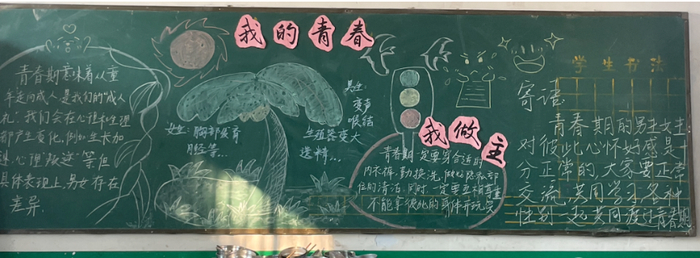 我的青春
我做主
青春期意味着从童
年走向成人是我们的"成人
礼".我们会在心理和生理
都产生变化,例如生长加
速、心理"叛逆"等但
具体表现上,男女存在
差异.
女生:胸部发育
月经等..
男生:
变声
喉结
生殖器变大
遗精...
青春期一定要穿合适的
内衣裤,勤换洗,做好
的清洁,同时一定要
不能拿彼此的身体开玩笑
学生书法
寄语
青春期的男生女生
对彼此心怀好感是十
分正常的,大家要正常
交流,共同学习各种
性别一起共同度过青春期